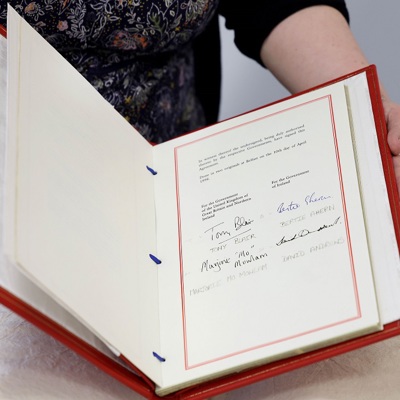 In witness thereof the undersigned, being duly authorised
by the respective Governments, have signed this
Agreement.
Done in two originals at Belfast on the 10th day of April
1998.
For the Government
of the United Kingdom of
Great Britain and Northern
Ireland
For the Government
of Ireland
Tony Blair
Bertie Ahern
TONY BLAIR
BERTIE AHERN
Marjorie "Mo"
Mowlam
MARJORIE MO MOWLAM
DAVID ANDREWS